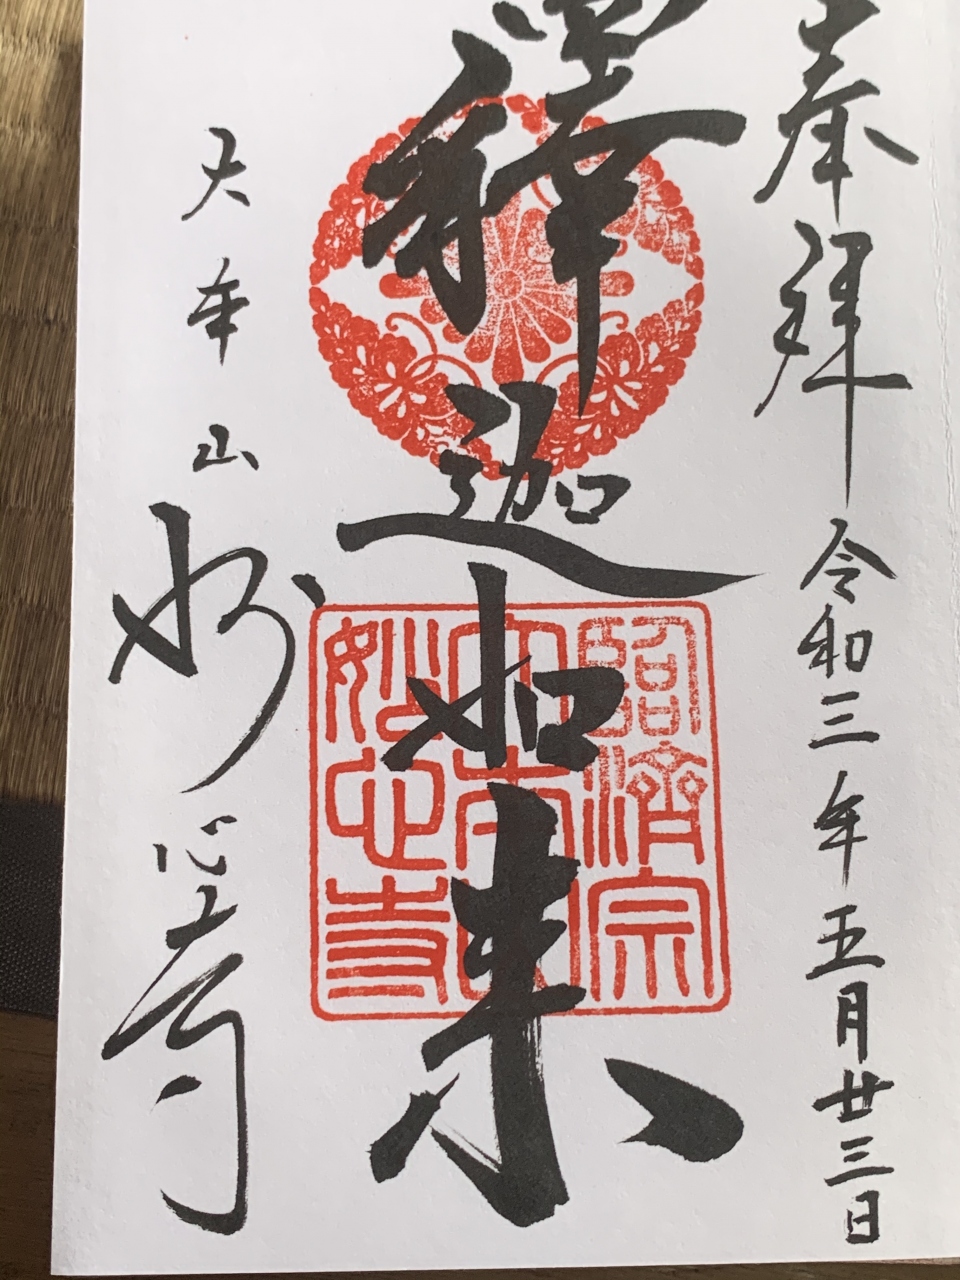 奉拝
令和三年五月廿三日
釋迦如来
臨済宗
大本山
妙心寺
大本山
妙心寺